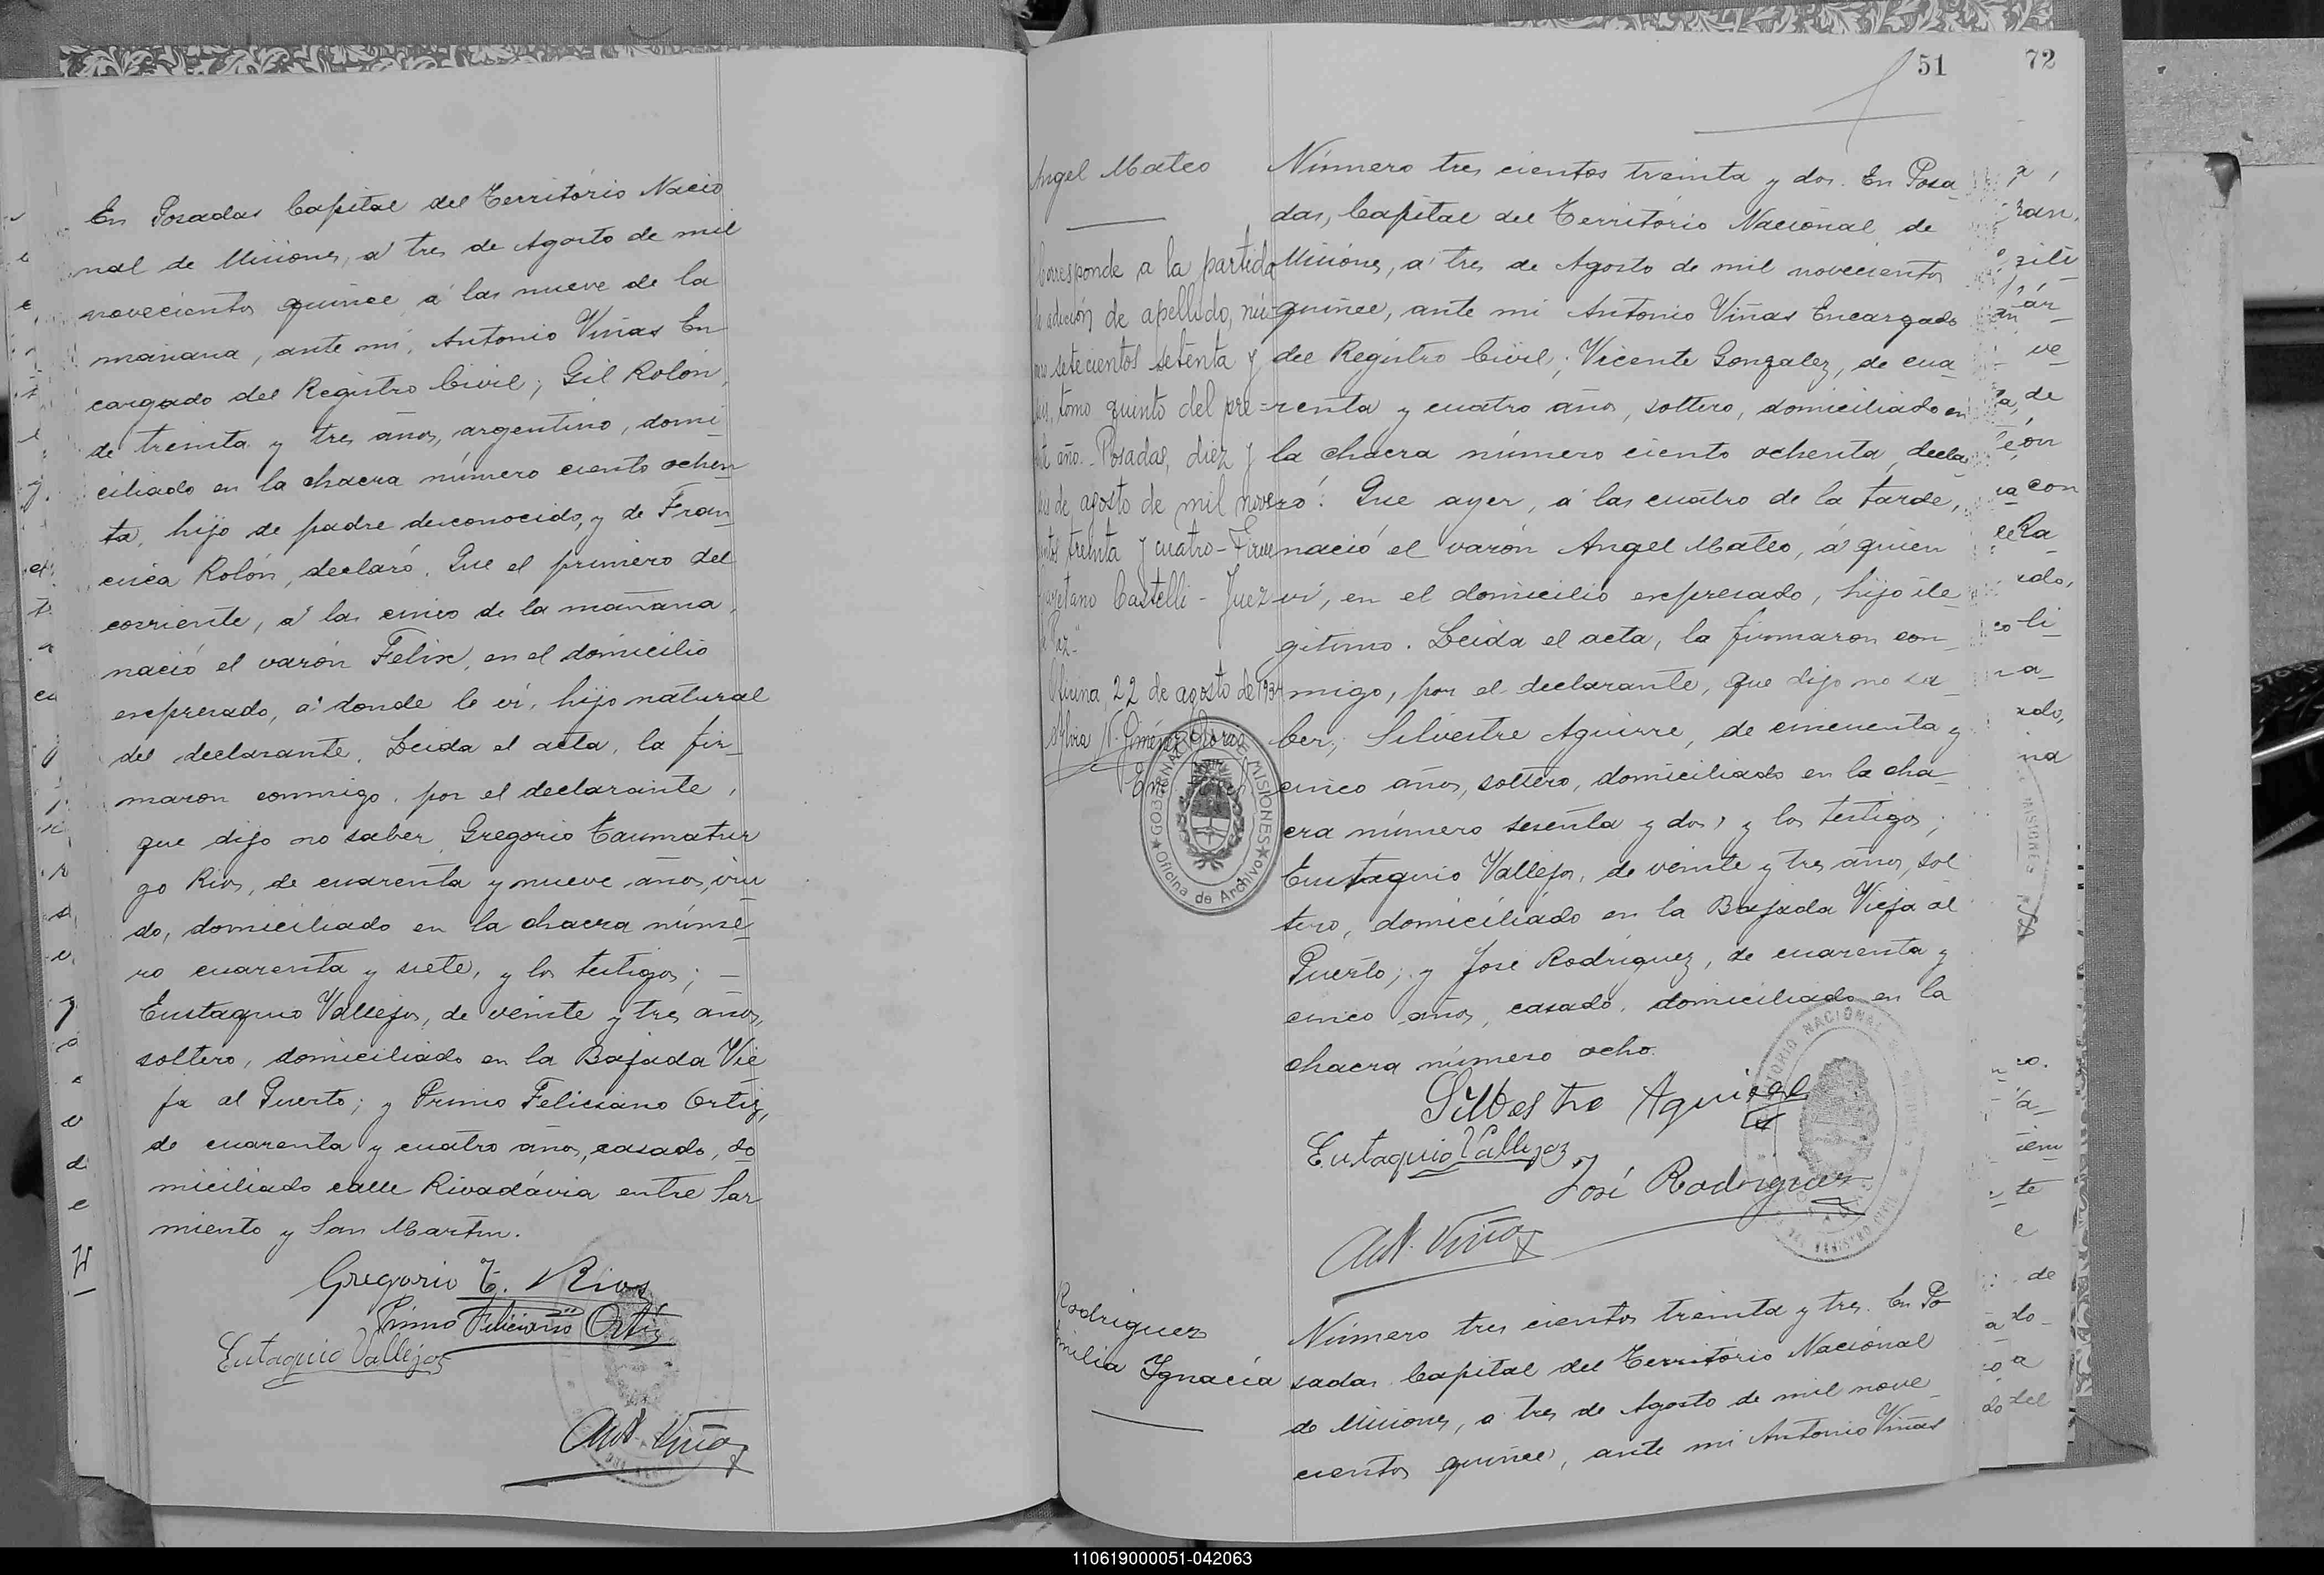 En Posadas Capital del Territorio Nacio
nal de Misiones, a tres de Agosto de mil
novecientos quince, a las nueve de la
mañana, ante mi, Antonio Viñas En
cargado del Registro Civil; Gil Rolón,
de treinta y tres años, argentino, domi
ciliado en la chacra número ciento ochen
ta, hijo de padre desconocido, y de Fran
cisca Rolón, declaró. Que el primero del
corriente, a las cinco de la mañana,
nació el varón Felix, en el domicilio
expresado, a donde le vi, hijo natural
del declarante. Leida el acta, la fir-
maron conmigo, por el declarante,
que dijo no saber Gregorio Taumatur
go Rios, de cuarenta y nueve años, viu
do, domiciliado en la chacra núme-
ro cuarenta y siete, y los testigos; —
Eustaquio Vallejos, de veinte y tres años,
soltero, domiciliado en la Bajada Vie
ja al Puerto; y Primo Feliciano Ortiz,
de cuarenta y cuatro años, casado, do
miciliado calle Rivadávia entre Sar
miento y San Martin.
Gregorio T. Rios
Primo Feliciano Ortiz
Eutaquio Vallejos
Ant. Viñas
51
72
Angel Mateo
Corresponde a la partida
de adición de apellido, nú-
setecientos setenta y
tomo quinto del pre=
año. Posadas, diez y
de agosto de mil nove
treinta y cuatro - Firm
Castelli - Juez
Oficina, 22 de agosto de 1934
GOBERNACION DE MISIONES
Oficina de Archivo
Número tres cientos treinta y dos. En Posa
das, Capital del Territorio Nacional de
Misiones, a tres de Agosto de mil novecientos
quince, ante mi Antonio Viñas Encargado
del Registro Civil; Vicente Gonzalez, de cua
renta y cuatro años, soltero, domiciliado en
la chacra número ciento ochenta, decla
ró: Que ayer, a las cuatro de la tarde,
nació el varón Angel Mateo, a quien
vi, en el domicilio expresado, hijo ile
gitimo. Leida el acta, la firmaron con
migo, por el declarante, que dijo no sa
ber, Silvestre Aguirre, de cincuenta y
cinco años, soltero, domiciliado en la cha
cra número sesenta y dos, y los testigos;
Eustaquio Vallejos, de veinte y tres años, sol
tero, domiciliado en la Bajada Vieja al
Puerto; y José Rodriguez, de cuarenta y
cinco años, casado, domiciliado en la
chacra número ocho.
Eutaquio Vallejos
José Rodriguez
Ant. Viñas
Rodriguez
Ignacia
Número tres cientos treinta y tres. En Po
sadas Capital del Territorio Nacional
de Misiones, a tres de Agosto de mil nove
cientos quince, ante mi Antonio Viñas
110619000051-042063